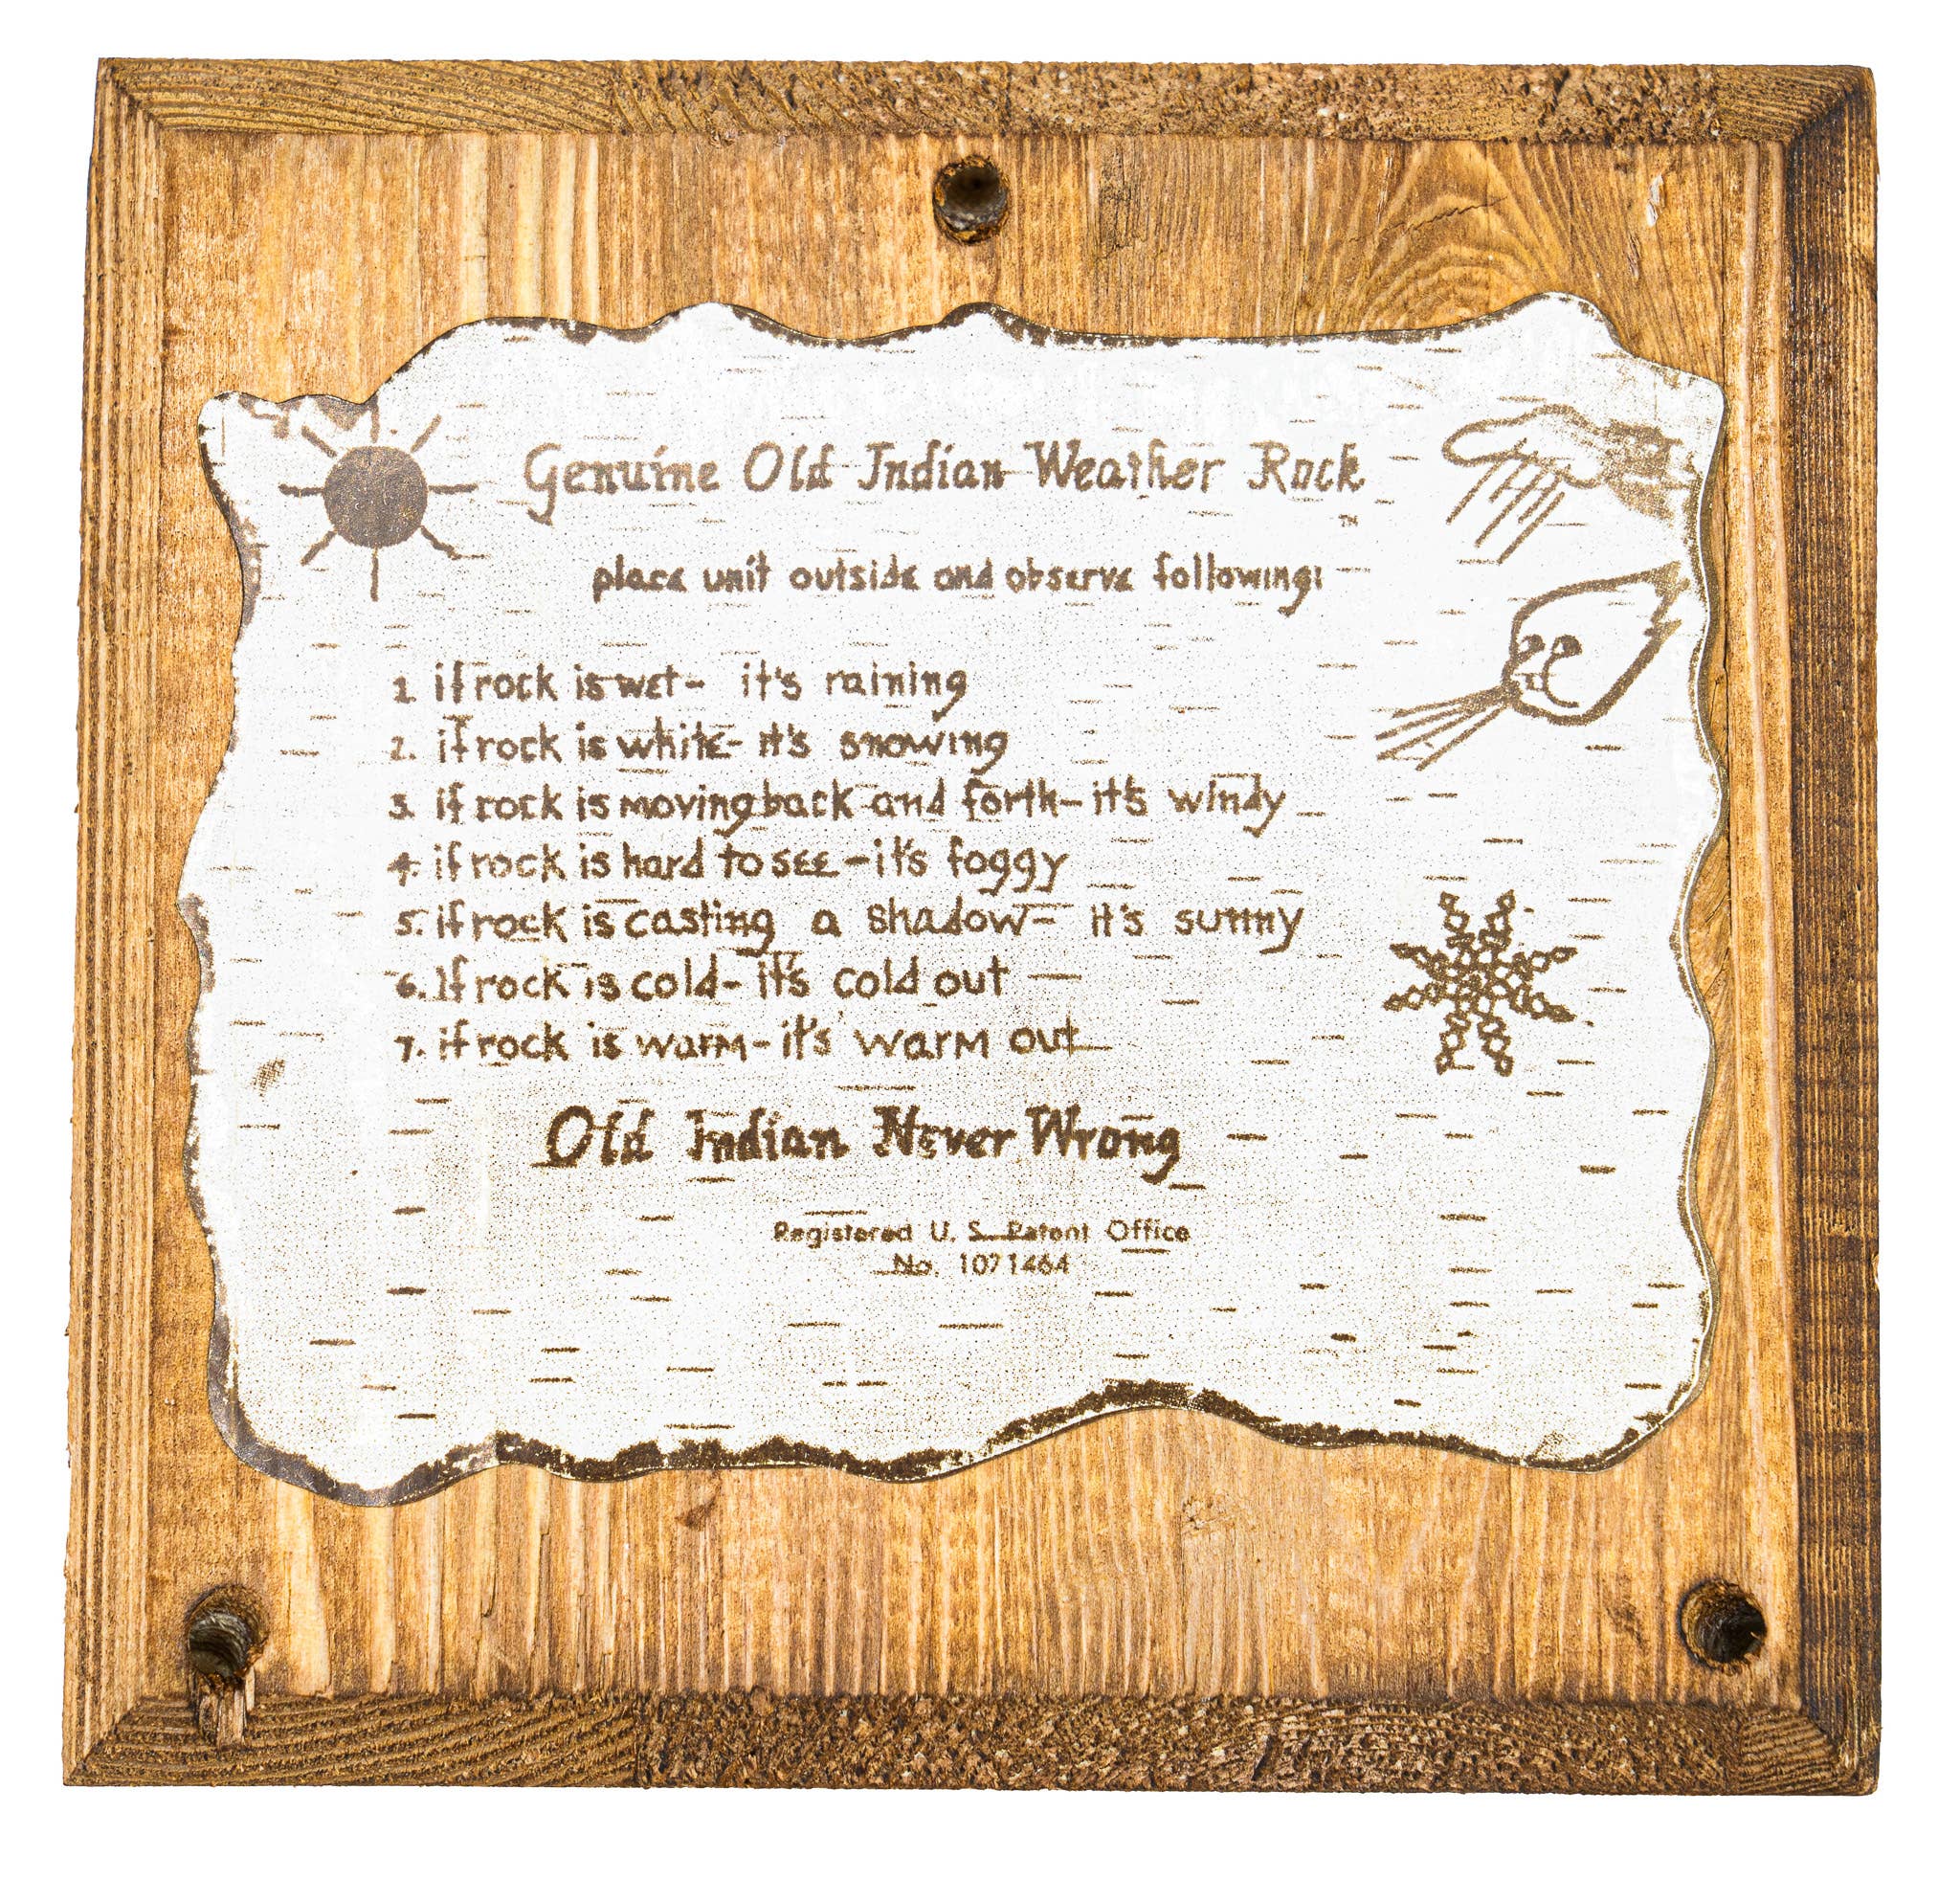 Genuine Old Indian Weather Rock
TM
place unit outside and observe following:
1. if rock is wet- it's raining
2. if rock is white- it's snowing
3. if rock is moving back and forth- it's windy
4. if rock is hard to see - it's foggy
5. if rock is casting a shadow- it's sunny
6. If rock is cold- it's cold out
7. if rock is warm- it's warm out
Old Indian Never Wrong
Registered U. S. Patent Office
No. 1071464